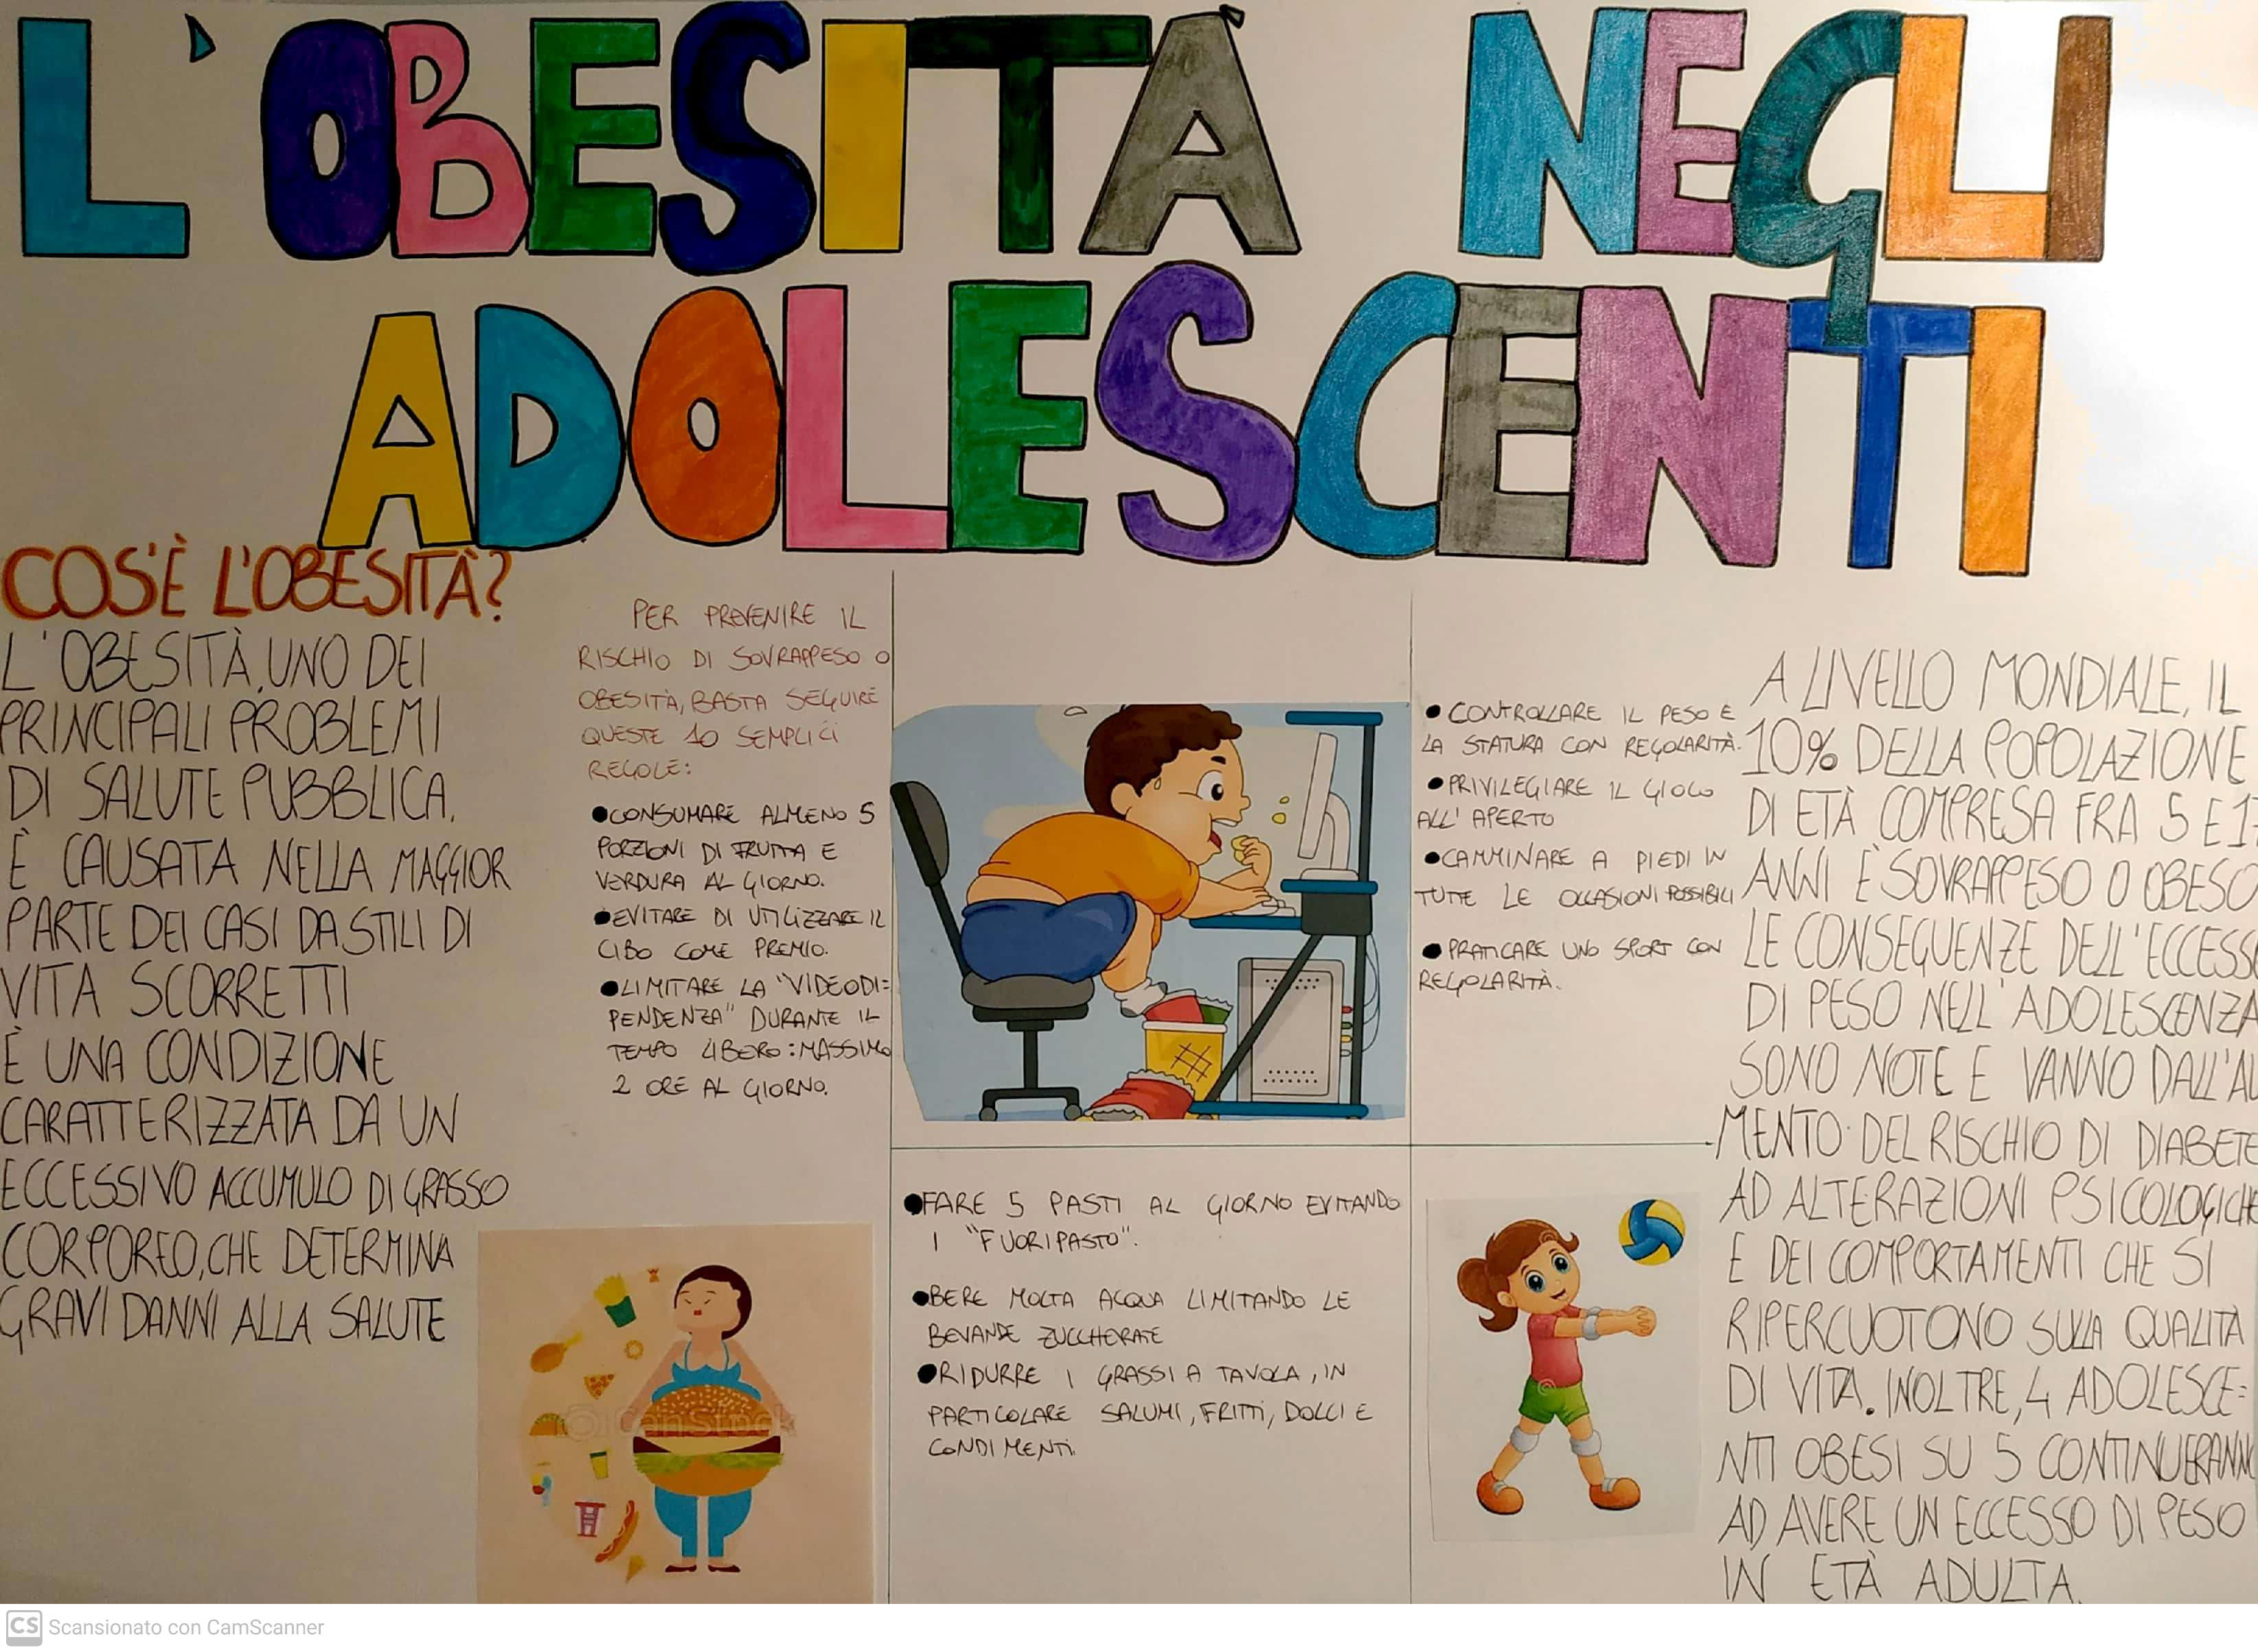 L'OBESITÀ NEGLI
ADOLESCENTI
COS'È L'OBESITÀ?
L'OBESITÀ, UNO DEI
PRINCIPALI PROBLEMI
DI SALUTE PUBBLICA.
È CAUSATA NELLA MAGGIOR
PARTE DEI CASI DA STILI DI
VITA SCORRETTI
È UNA CONDIZIONE
CARATTERIZZATA DA UN
ECCESSIVO ACCUMULO DI GRASSO
CORPOREO, CHE DETERMINA
GRAVI DANNI ALLA SALUTE
PER PREVENIRE IL
RISCHIO DI SOVRAPPESO O
OBESITÀ, BASTA SEGUIRE
QUESTE 10 SEMPLICI
REGOLE:
●CONSUMARE ALMENO 5
PORZIONI DI FRUTTA E
VERDURA AL GIORNO.
●EVITARE DI UTILIZZARE IL
CIBO COME PREMIO.
●LIMITARE LA "VIDEODI=
PENDENZA" DURANTE IL
TEMPO LIBERO: MASSIMO
2 ORE AL GIORNO.
●FARE 5 PASTI AL GIORNO EVITANDO
I "FUORIPASTO".
●BERE MOLTA ACQUA LIMITANDO LE
BEVANDE ZUCCHERATE
●RIDURRE I GRASSI A TAVOLA, IN
PARTICOLARE SALUMI, FRITTI, DOLCI E
CONDIMENTI.
● CONTROLLARE IL PESO E
LA STATURA CON REGOLARITÀ.
●PRIVILEGIARE IL GIOCO
ALL'APERTO
●CAMMINARE A PIEDI IN
TUTTE LE OCCASIONI POSSIBILI
● PRATICARE UNO SPORT CON
REGOLARITÀ.
A LIVELLO MONDIALE, IL
10% DELLA POPOLAZIONE
DI ETÀ COMPRESA FRA 5 E
ANNI È SOVRAPPESO O OBESO
LE CONSEGUENZE DELL'ECCESSO
DI PESO NELL'ADOLESCENZA
SONO NOTE E VANNO DALL'AU
MENTO DEL RISCHIO DI DIABETE
AD ALTERAZIONI PSICOLOGICHE
E DEI COMPORTAMENTI CHE SI
RIPERCUOTONO SULLA QUALITÀ
DI VITA. INOLTRE, 4 ADOLESCE=
NTI OBESI SU 5 CONTINUERANNO
AD AVERE UN ECCESSO DI PESO
IN ETÀ ADULTA.
CanStock
CS Scansionato con CamScanner